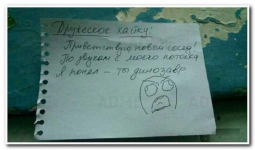 Дружеское хайку:
Приветствую новой сосед!
По звукам с моего потолка
Я понял – ты динозавр